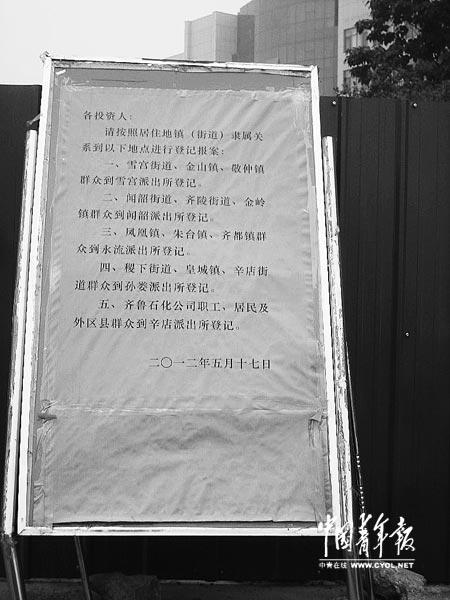 各投资人：
请按照居住地镇（街道）隶属关
系到以下地点进行登记报案：
一、雪宫街道、金山镇、敬仲镇
群众到雪宫派出所登记。
二、闻韶街道、齐陵街道、金岭
镇群众到闻韶派出所登记。
三、凤凰镇、朱台镇、齐都镇群
众到永流派出所登记。
四、稷下街道、皇城镇、辛店街
道群众到孙娄派出所登记。
五、齐鲁石化公司职工、居民及
外区县群众到辛店派出所登记。
二〇一二年五月十七日
中国青年报
中青在线 WWW.CYOL.NET